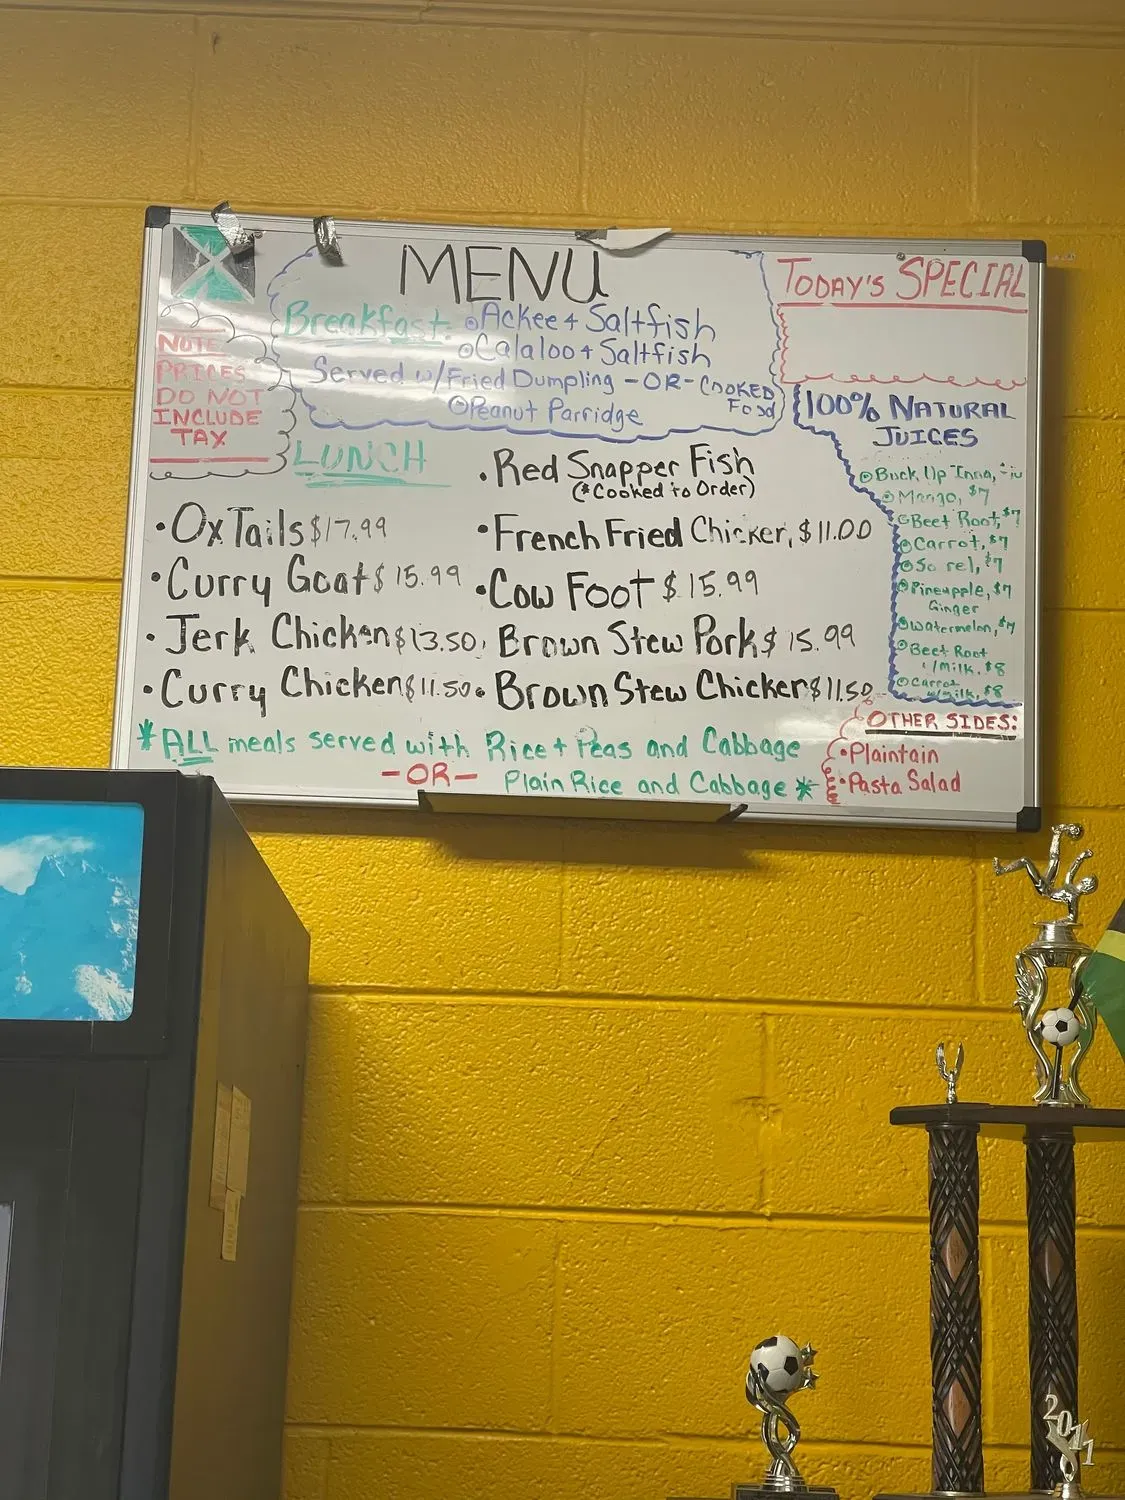 MENU
Breakfast: Ackee + Saltfish
Calaloo + Saltfish
Served w/Fried Dumpling - OR - COOKED Food
Peanut Parridge
NOTE
PRICES
DO NOT
INCLUDE
TAX
TODAY'S SPECIAL
100% NATURAL
JUICES
Buck Up Inna,
Mango, $7
Beet Root, $7
Carrot, $7
So rel, $7
Pineapple, $7
Ginger
Watermelon, $7
Beet Root
w/milk, $8
Carrot
w/milk, $8
LUNCH
• Ox Tails $17.99
• Curry Goat $15.99
• Jerk Chicken $13.50
• Curry Chicken $11.50
• Red Snapper Fish
(*Cooked to Order)
• French Fried Chicken, $11.00
• Cow Foot $15.99
• Brown Stew Pork $15.99
• Brown Stew Chicken $11.50
*ALL meals served with Rice + Peas and Cabbage
-OR- Plain Rice and Cabbage *
OTHER SIDES:
• Plaintain
• Pasta Salad
2011